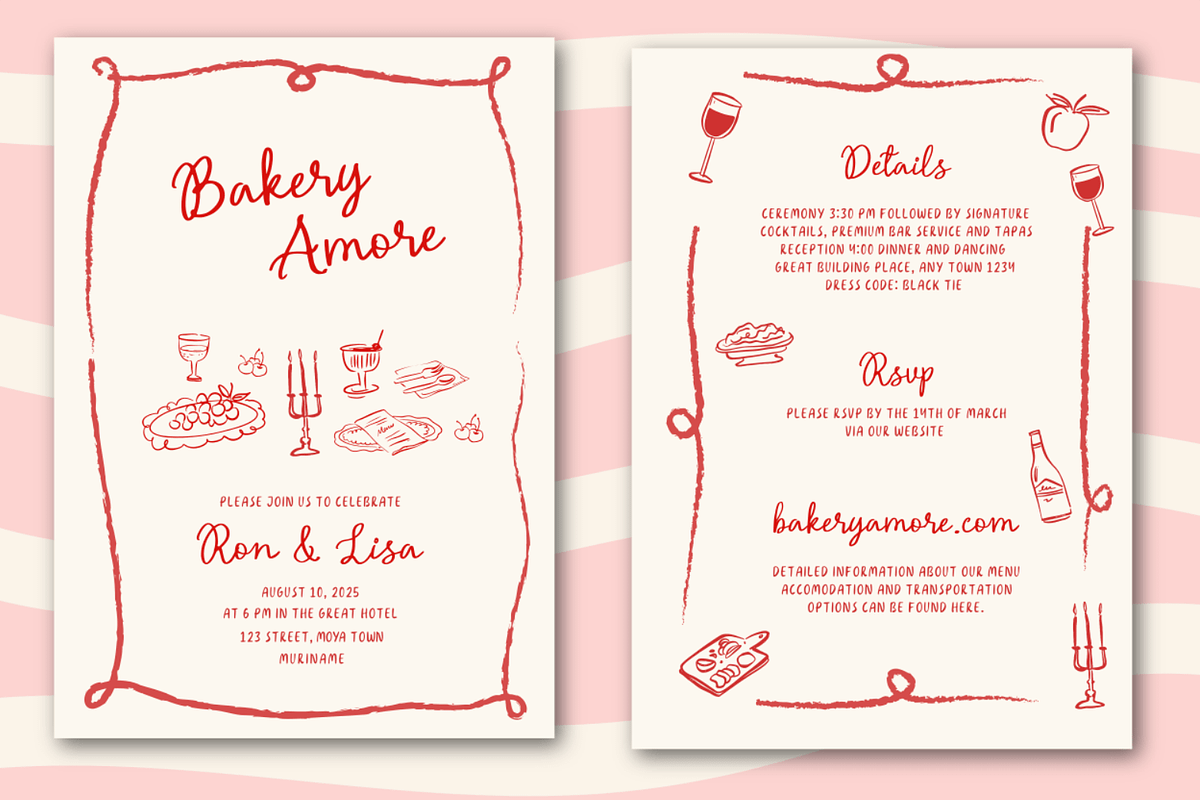 Bakery
Amore
Menu
PLEASE JOIN US TO CELEBRATE
Ron & Lisa
AUGUST 10, 2025
AT 6 PM IN THE GREAT HOTEL
123 STREET, MOYA TOWN
MURINAME
Details
CEREMONY 3:30 PM FOLLOWED BY SIGNATURE
COCKTAILS, PREMIUM BAR SERVICE AND TAPAS
RECEPTION 4:00 DINNER AND DANCING
GREAT BUILDING PLACE, ANY TOWN 1234
DRESS CODE: BLACK TIE
Rsvp
PLEASE RSVP BY THE 14TH OF MARCH
VIA OUR WEBSITE
bakeryamore.com
DETAILED INFORMATION ABOUT OUR MENU
ACCOMODATION AND TRANSPORTATION
OPTIONS CAN BE FOUND HERE.